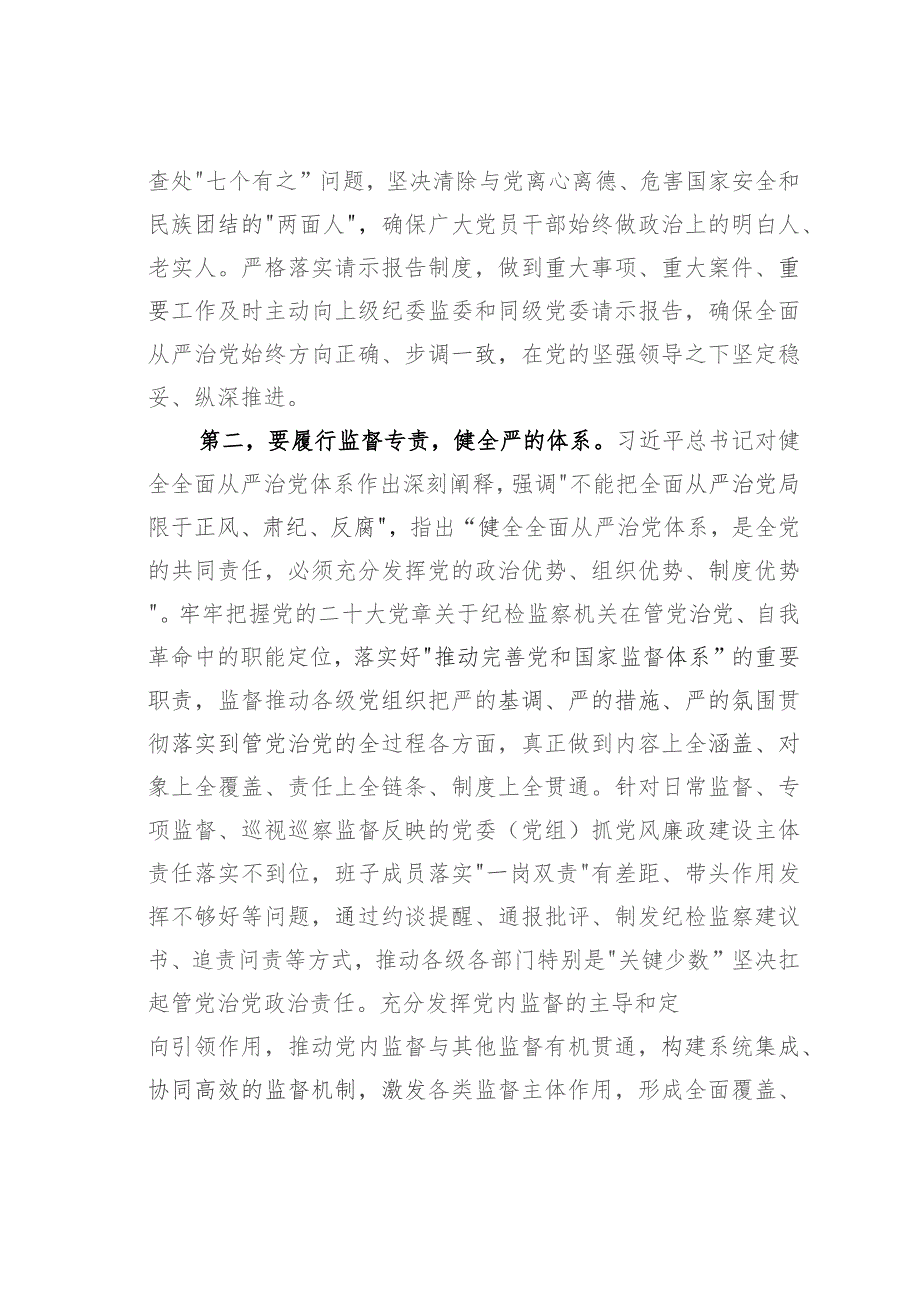 查处"七个有之”问题，坚决清除与党离心离德、危害国家安全和
民族团结的"两面人"，确保广大党员干部始终做政治上的明白人、
老实人。严格落实请示报告制度，做到重大事项、重大案件、重
要工作及时主动向上级纪委监委和同级党委请示报告，确保全面
从严治党始终方向正确、步调一致，在党的坚强领导之下坚定稳
妥、纵深推进。
第二，要履行监督专责，健全严的体系。习近平总书记对健
全全面从严治党体系作出深刻阐释，强调"不能把全面从严治党局
限于正风、肃纪、反腐"，指出“健全全面从严治党体系，是全党
的共同责任，必须充分发挥党的政治优势、组织优势、制度优势
"。牢牢把握党的二十大党章关于纪检监察机关在管党治党、自我
革命中的职能定位，落实好"推动完善党和国家监督体系”的重要
职责，监督推动各级党组织把严的基调、严的措施、严的氛围贯
彻落实到管党治党的全过程各方面，真正做到内容上全涵盖、对
象上全覆盖、责任上全链条、制度上全贯通。针对日常监督、专
项监督、巡视巡察监督反映的党委（党组）抓党风廉政建设主体
责任落实不到位，班子成员落实"一岗双责"有差距、带头作用发
挥不够好等问题，通过约谈提醒、通报批评、制发纪检监察建议
书、追责问责等方式，推动各级各部门特别是"关键少数”坚决扛
起管党治党政治责任。充分发挥党内监督的主导和定
向引领作用，推动党内监督与其他监督有机贯通，构建系统集成、
协同高效的监督机制，激发各类监督主体作用，形成全面覆盖、